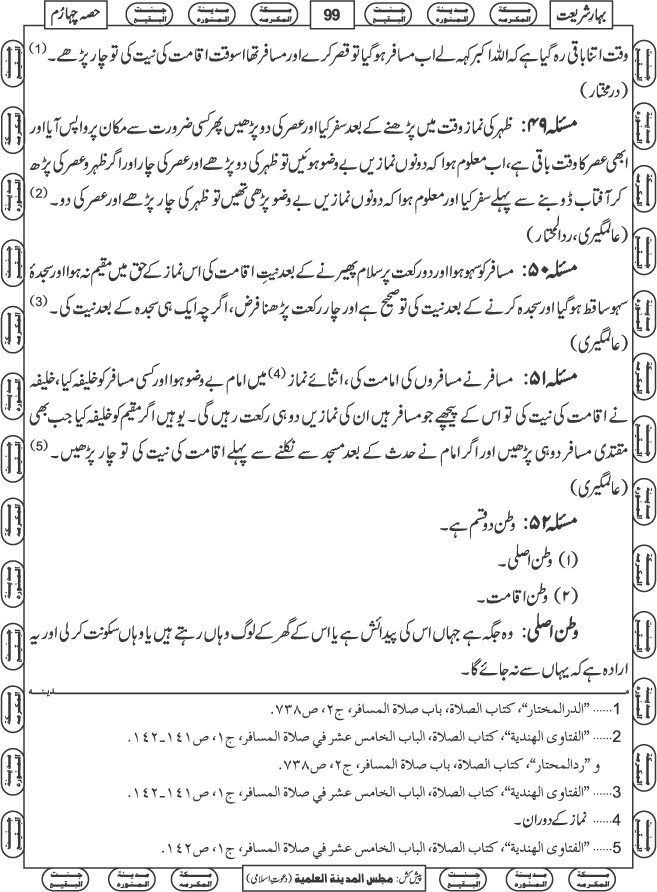 بہارِ شریعت
جنت البقیع
مدینة المنوره
مكة المكرمه
99
جنت البقیع
مدینة المنوره
مكة المكرمه
حصہ چہارم
وقت اتنا باقی رہ گیا ہے کہ اللہ اکبر کہہ لے اب مسافر ہوگیا تو قصر کرے اور مسافر تھا اسوقت اقامت کی نیت کی تو چار پڑھے۔ (1)
(درمختار)
مسئلہ ۴۹: ظہر کی نماز وقت میں پڑھنے کے بعد سفر کیا اور عصر کی دو پڑھیں پھر کسی ضرورت سے مکان پر واپس آیا اور
ابھی عصر کا وقت باقی ہے، اب معلوم ہوا کہ دونوں نمازیں بے وضو ہوئیں تو ظہر کی دو پڑھے اور عصر کی چار اور اگر ظہر و عصر کی پڑھ
کر آفتاب ڈوبنے سے پہلے سفر کیا اور معلوم ہوا کہ دونوں نمازیں بے وضو پڑھی تھیں تو ظہر کی چار پڑھے اور عصر کی دو۔ (2)
(عالمگیری، ردالمحتار)
مسئلہ ۵۰: مسافر کو سہو ہوا اور دو رکعت پر سلام پھیرنے کے بعد نیتِ اقامت کی اس نماز کے حق میں مقیم نہ ہوا اور سجدۂ
سہو ساقط ہوگیا اور سجدہ کرنے کے بعد نیت کی تو صحیح ہے اور چار رکعت پڑھنا فرض، اگرچہ ایک ہی سجدہ کے بعد نیت کی۔ (3)
(عالمگیری)
مسئلہ ۵۱: مسافر نے مسافروں کی امامت کی، اثنائے نماز (4) میں امام بے وضو ہوا اور کسی مسافر کو خلیفہ کیا، خلیفہ
نے اقامت کی نیت کی تو اس کے پیچھے جو مسافر ہیں ان کی نمازیں دو ہی رکعت رہیں گی۔ یوہیں اگر مقیم کو خلیفہ کیا جب بھی
مقتدی مسافر دو ہی پڑھیں اور اگر امام نے حدث کے بعد مسجد سے نکلنے سے پہلے اقامت کی نیت کی تو چار پڑھیں۔ (5)
(عالمگیری)
مسئلہ ۵۲: وطن دو قسم ہے۔
(۱) وطن اصلی۔
(۲) وطن اقامت۔
وطن اصلی: وہ جگہ ہے جہاں اس کی پیدائش ہے یا اس کے گھر کے لوگ وہاں رہتے ہیں یا وہاں سکونت کر لی اور یہ
ارادہ ہے کہ یہاں سے نہ جائے گا۔
مدینہ
1...... "الدرالمختار"، کتاب الصلاة، باب صلاة المسافر، ج۲، ص۷۳۸.
2...... "الفتاوی الهندیة"، کتاب الصلاة، الباب الخامس عشر في صلاة المسافر، ج۱، ص۱۴۱ـ۱۴۲.
و "ردالمحتار"، کتاب الصلاة، باب صلاة المسافر، ج۲، ص۷۳۸.
3...... "الفتاوی الهندیة"، کتاب الصلاة، الباب الخامس عشر في صلاة المسافر، ج۱، ص۱۴۱ـ۱۴۲.
4...... نماز کے دوران۔
5...... "الفتاوی الهندیة"، کتاب الصلاة، الباب الخامس عشر في صلاة المسافر، ج۱، ص۱۴۲.
مكة المكرمه
مدینة المنوره
جنت البقیع
پیش کش: مجلس المدینة العلمیة (دعوتِ اسلامی)
مكة المكرمه
مدینة المنوره
جنت البقیع